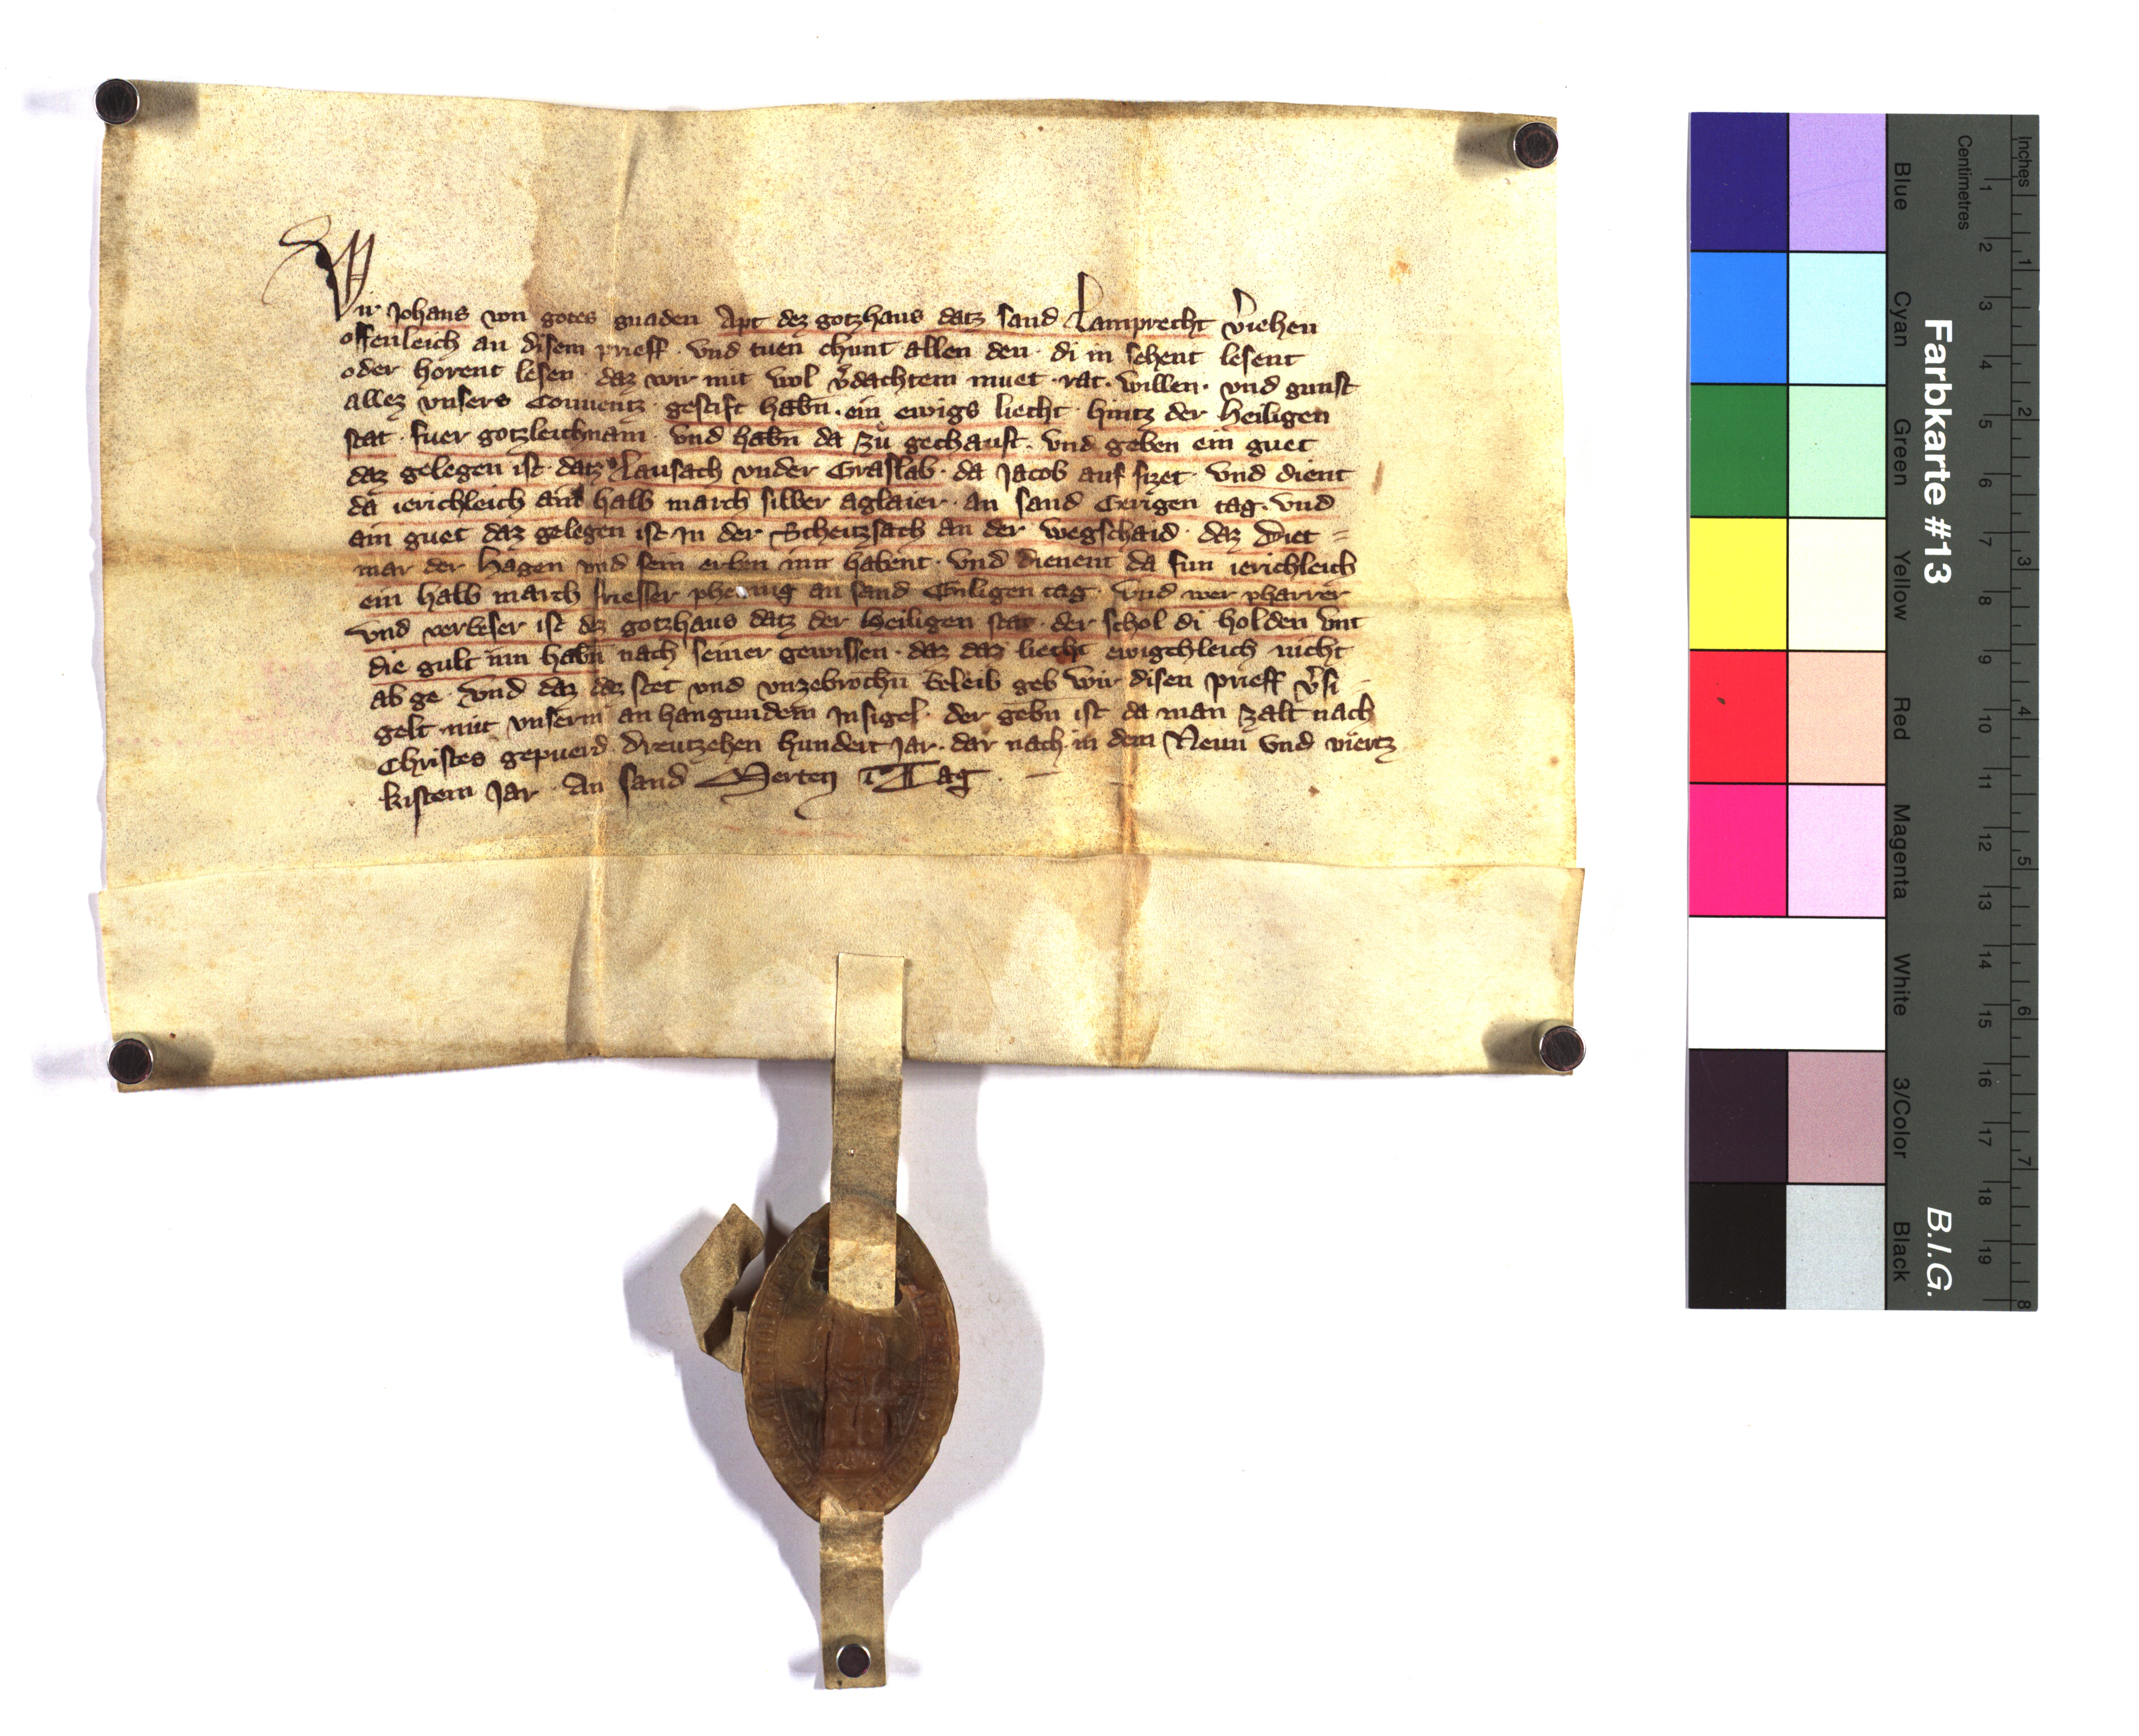 Wir Johans von gotes gnaden Apt dez gotzhaus datz sand Lamprecht v̓iehen
offenleich an disem prieff · vnd tuen chunt allen den · di in sehent lesent
oder horent lesen · daz wir mit wol v̓dachtem muet · rat · willen · vnd gunst
allez vnsers Conuentz · gestift habn̄ · ein ewigs liecht · hintz der Heiligen
stat · fuer gotzleichnam · vnd habn̄ da zů gechauft · vnd geben ein guet
daz gelegen ist · datz Lausach vnder Graslab · da Jacob auf sizet · vnd dient
da ierichleich ain halb march silber aglaier · an sand Gerigen tag · vnd
ain guet daz gelegen ist · In der Scheitzsach an der wegschaid · daz Diet =
mar der Hagen vnd sein erben inn habent · vnd dienent da fun ierichleich
ein halb march friesser phenning an sand Giligen tag · vnd wer pharrer
vnd verbeser ist dez gotzhaus datz der Heiligen stat · der schol di holden vnt
die gult inn habn̄ nach seiner gewissen · daz daz liecht ewigchleich nicht
ab ge · vnd daz daz stet vnd vnzebrochn̄ beleib geb wir disen prieff v̓si
gelt mit vnserm anhangundem Insigel · der gebn̄ ist da man zalt nach
Christes gepuerd · Dreutzehen hundert Jar · dar nach in dem Neun vnd viertz
kistem Jar · An sand Merten Tag · —
Inches
Centimetres
1 2 3 4 5 6 7 8 9 10 11 12 13 14 15 16 17 18 19
1 2 3 4 5 6 7 8
Farbkarte #13
B.I.G.
Blue
Cyan
Green
Yellow
Red
Magenta
White
3/Color
Black